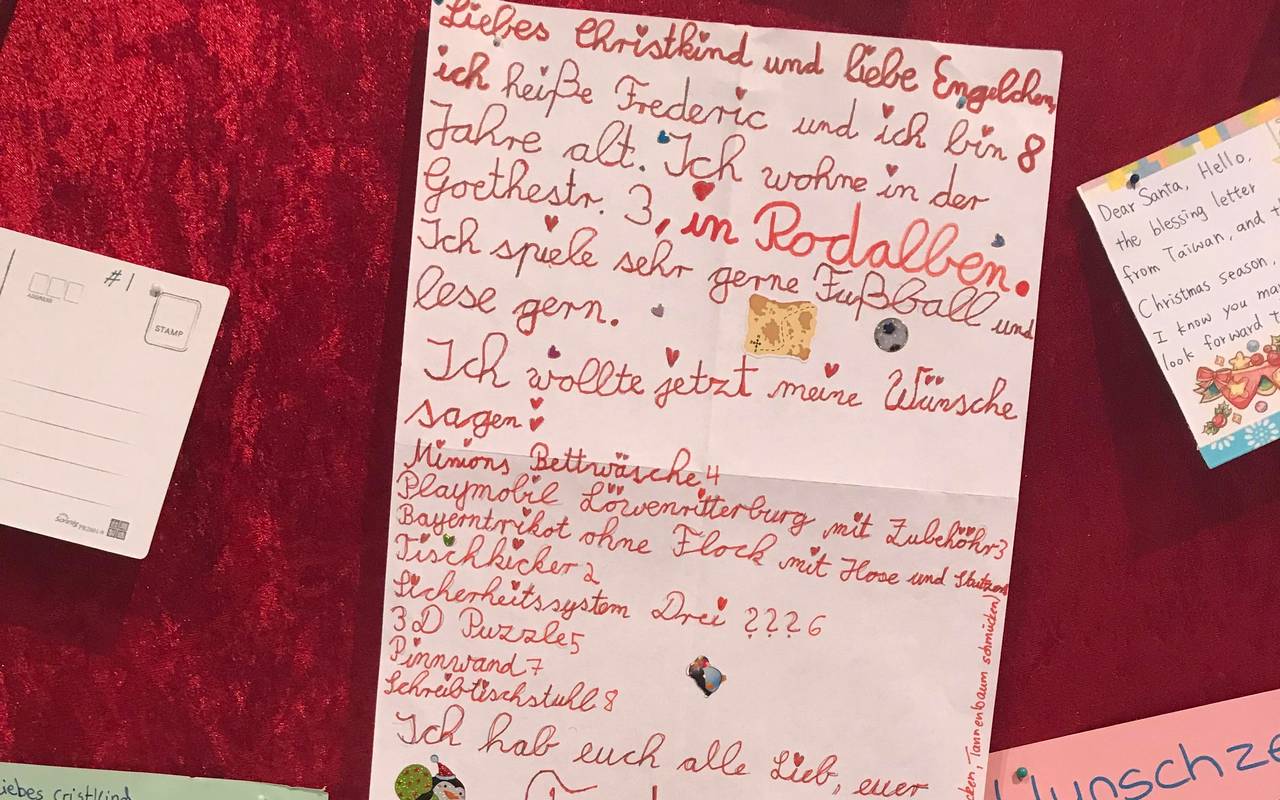 Liebes Christkind und liebe Engelchen,
ich heiße Frederic und ich bin 8
Jahre alt. Ich wohne in der
Goethestr. 3, in Rodalben.
Ich spiele sehr gerne Fußball und
lese gern.
Ich wollte jetzt meine Wünsche
sagen:
Minions Bettwäsche 4
Playmobil Löwenritterburg mit Zubehöhr 3
Bayerntrikot ohne Flock mit Hose und Stutzen
Tischkicker 2
Sicherheitssystem Drei ??? 6
3D Puzzle 5
Pinnwand 7
Schreibtischstuhl 8
Ich hab euch alle Lieb, euer
Tannenbaum schmücken)
#1
ADDRESS
STAMP
Dear Santa, Hello,
the blessing letter
from Taiwan, and
Christmas season,
I know you
look forward
liebes cristkind